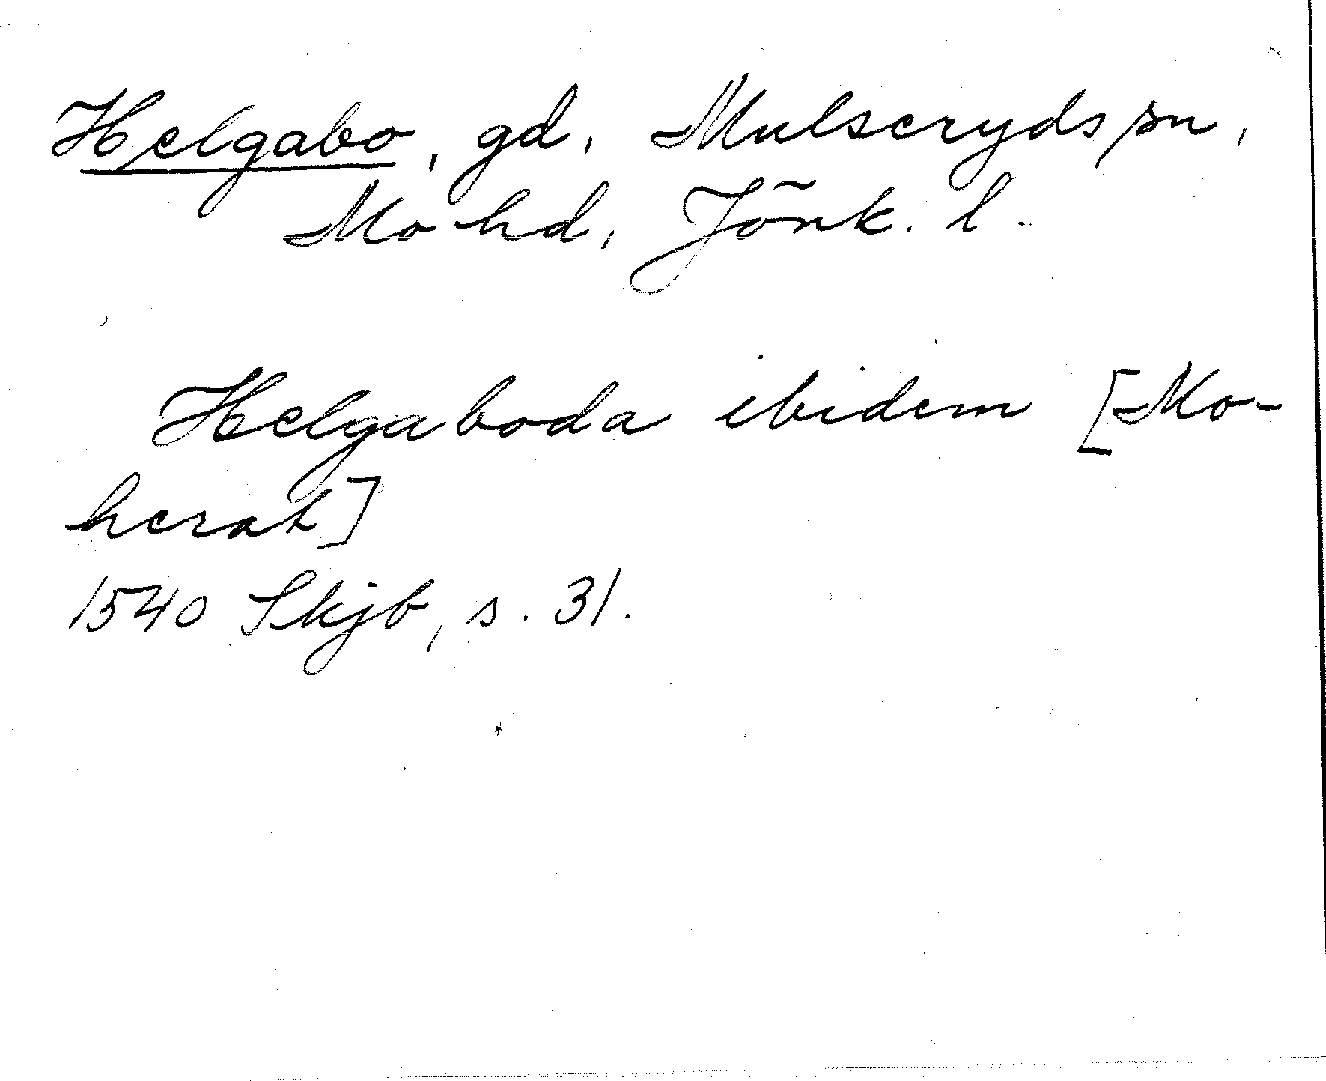 Helgabo, gd, Mulseryds sn,
Mo hd, Jönk. l.
Helgaboda ibidem [Mo-
herat]
1540 Skjb, s. 31.